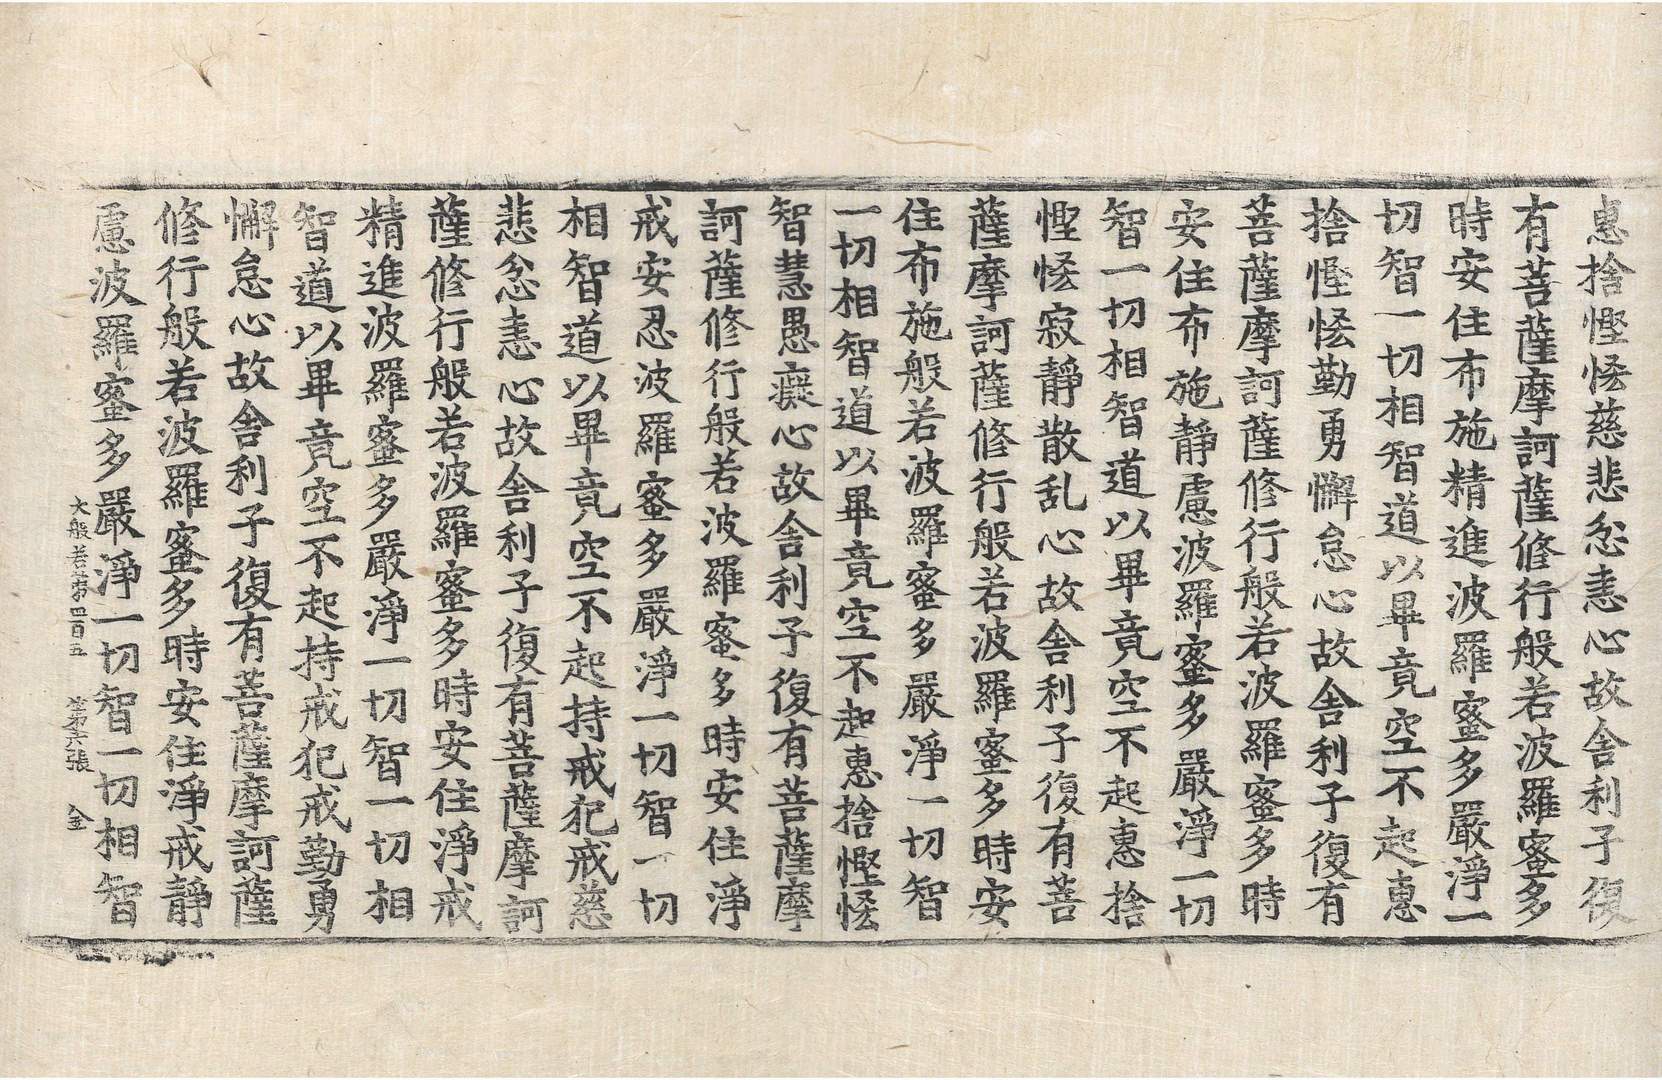 惠捨慳悋慈悲忿恚心故舍利子復
有菩薩摩訶薩修行般若波羅蜜多
時安住布施精進波羅蜜多嚴淨一
切智一切相智道以畢竟空不起惠
捨慳悋勤勇懈怠心故舍利子復有
菩薩摩訶薩修行般若波羅蜜多時
安住布施靜慮波羅蜜多嚴淨一切
智一切相智道以畢竟空不起惠捨
慳悋寂靜散乱心故舍利子復有菩
薩摩訶薩修行般若波羅蜜多時安
住布施般若波羅蜜多嚴淨一切智
一切相智道以畢竟空不起惠捨慳悋
智慧愚癡心故舍利子復有菩薩摩
訶薩修行般若波羅蜜多時安住淨
戒安忍波羅蜜多嚴淨一切智一切
相智道以畢竟空不起持戒犯戒慈
悲忿恚心故舍利子復有菩薩摩訶
薩修行般若波羅蜜多時安住淨戒
精進波羅蜜多嚴淨一切智一切相
智道以畢竟空不起持戒犯戒勤勇
懈怠心故舍利子復有菩薩摩訶薩
修行般若波羅蜜多時安住淨戒靜
慮波羅蜜多嚴淨一切智一切相智
大般若第四百五 第六張 金